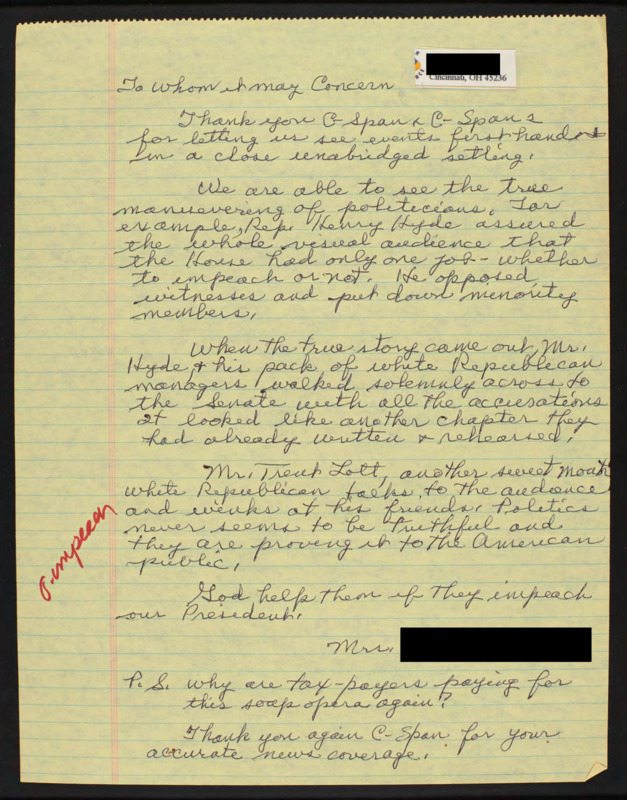 Cincinnati, OH 45236
To Whom it may Concern
Thank you C-Span & C-Span 2
for letting us see events first hand
in a close unabridged setting.
We are able to see the true
manuevering of politicions. For
example, Rep. Henry Hyde assured
the whole visual audience that
the House had only one job - whether
to impeach or not. He opposed
witnesses and put down minority
members.
When the true story came out, Mr.
Hyde, & his pack of white Republican
managers walked solemnly across to
the Senate with all the accusations
It looked like another chapter they
had already written & rehearsed.
Mr. Trent Lott, another sweet mouth
white Republican talks to the audience
and winks at his friends. Politics
never seems to be truthful and
they are proving it to the American
public.
impeach
God help them if they impeach
our President.
Mrs.
P.S. Why are tax-payers paying for
this soap opera again?
Thank you again C-Span for your
accurate news coverage.